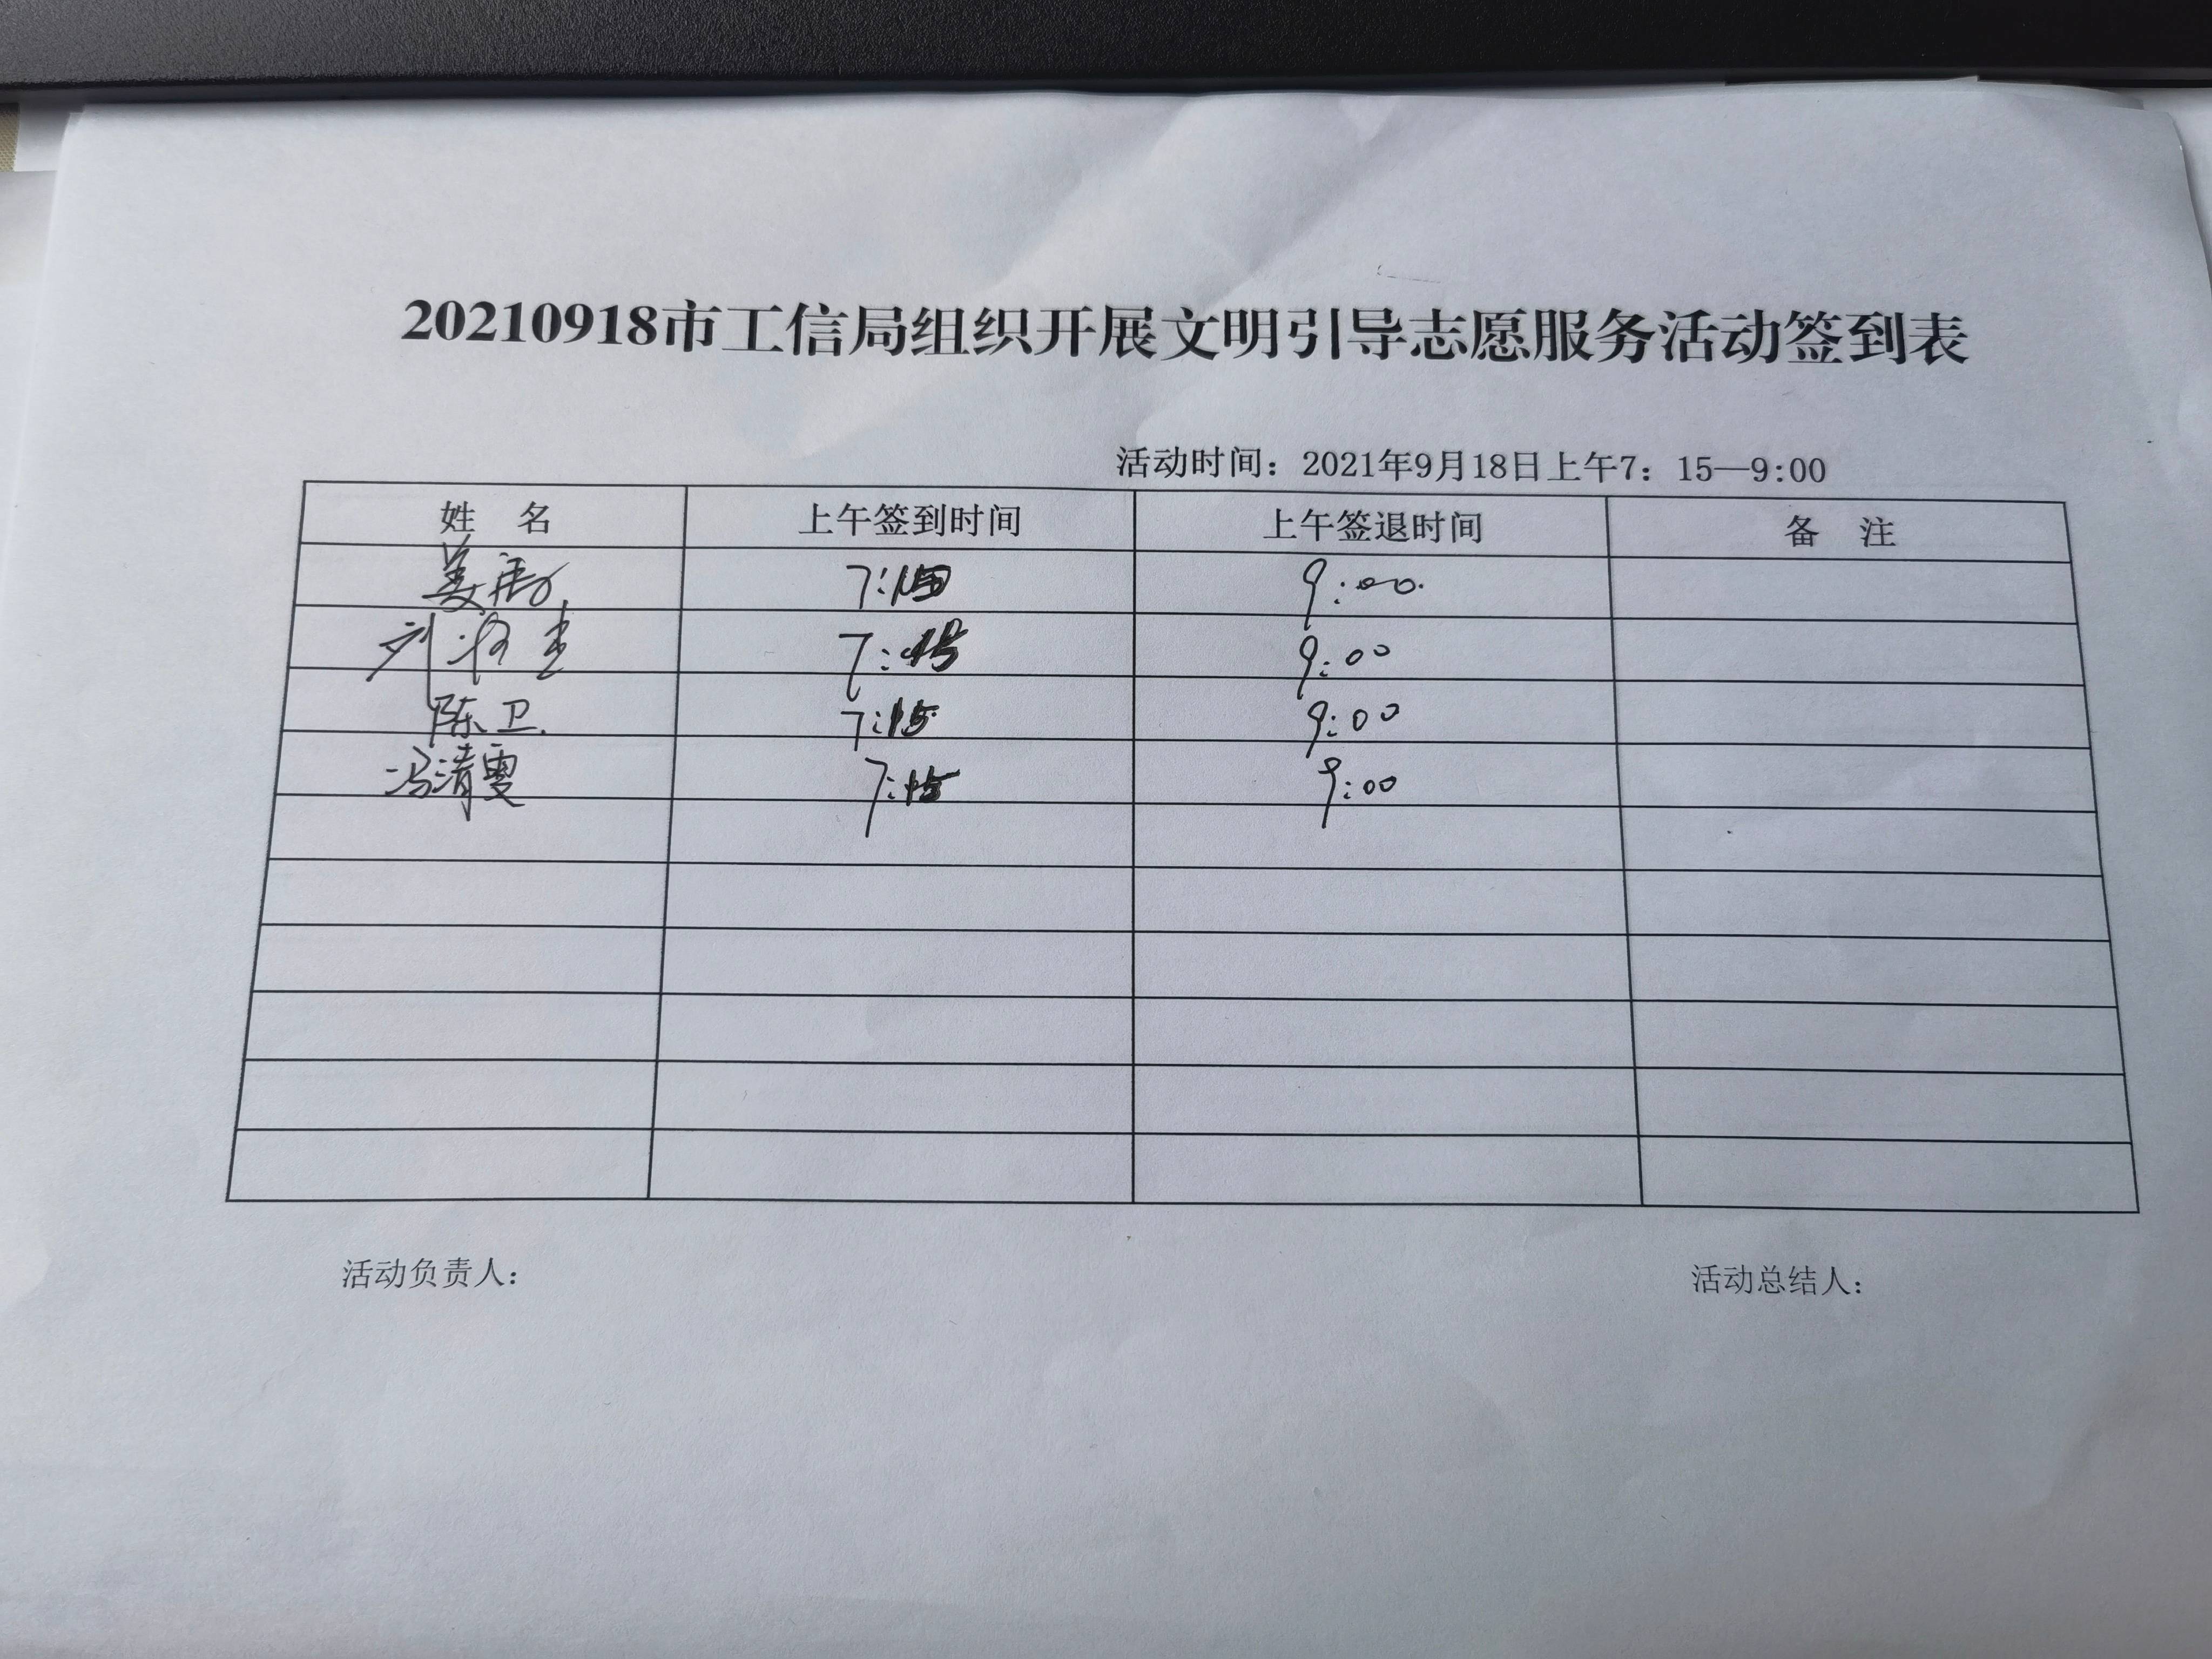 20210918市工信局组织开展文明引导志愿服务活动签到表
活动时间：2021年9月18日上午7：15—9:00
姓 名 上午签到时间 上午签退时间 备 注
姜 7:15 9:00.
刘 7:15 9:00
陈卫. 7:15 9:00
冯清雯 7:15 9:00
活动负责人： 活动总结人：